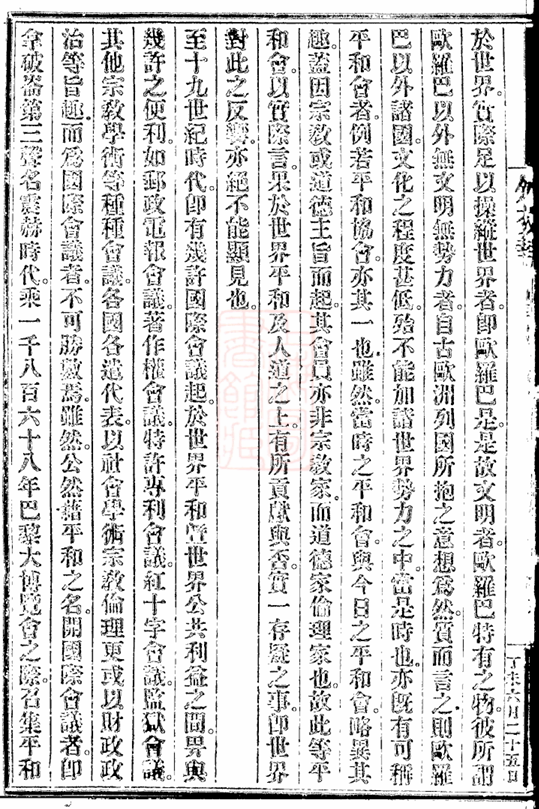 於世界。實際足以操縱世界者。卽歐羅巴是。是故文明者。歐羅巴特有之物。彼所謂
歐羅巴以外無文明無勢力者。自古歐洲列國所抱之意想爲然。質而言之。則歐羅
巴以外諸國。文化之程度甚低。殆不能加諸世界勢力之中。當是時也。亦旣有可稱
平和會者。例若平和協會。亦其一也。雖然。當時之平和會。與今日之平和會。略異其
趣。蓋因宗敎或道德主旨而起。其會員亦非宗敎家而道德家倫理家也。故此等平
和會。以實際言。果於世界平和及人道之上。有所貢獻與否。實一存疑之事。卽世界
對此之反響。亦絕不能顯見也。
至十九世紀時代。卽有幾許國際會議。起於世界平和曁世界公共利益之間。畀與
幾許之便利。如郵政電報會議。著作權會議。特許專利會議。紅十字會議。監獄會議。
其他宗敎學術等種種會議。各國各遣代表。以社會學術宗敎倫理。更或以財政政
治等旨趣。而爲國際會議者。不可勝數焉。雖然。公然藉平和之名。開國際會議者。卽
拿破崙第三聲名震赫時代。乘一千八百六十八年巴黎大博覽會之際。召集平和
丁未六月二十五日